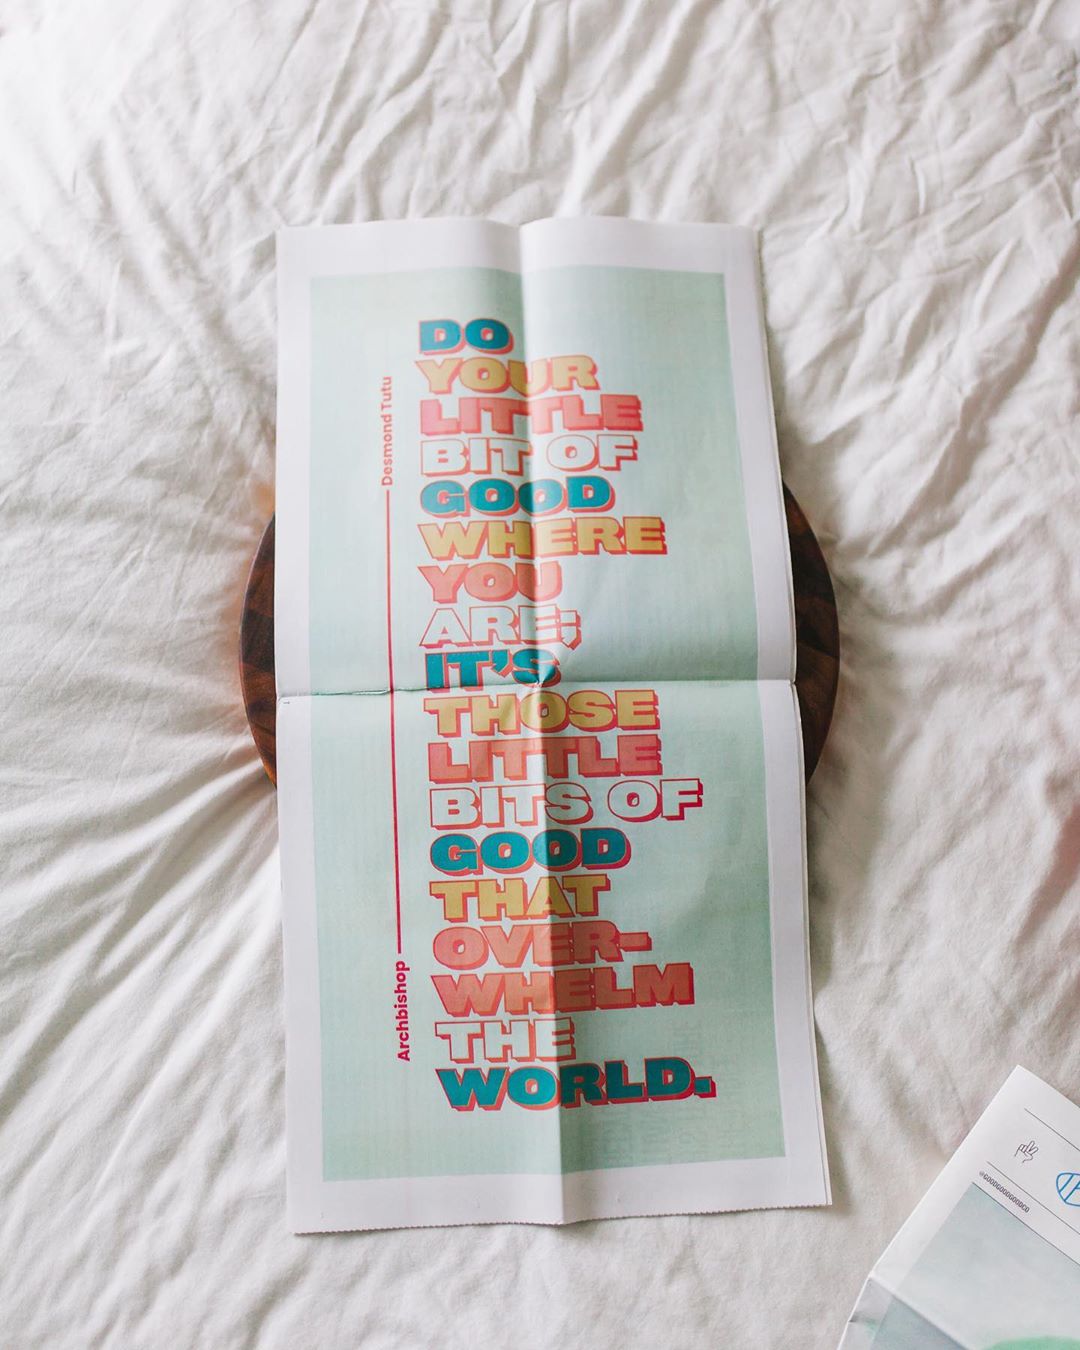 DO
YOUR
LITTLE
BIT OF
GOOD
WHERE
YOU
ARE;
IT'S
THOSE
LITTLE
BITS OF
GOOD
THAT
OVER-
WHELM
THE
WORLD.
Archbishop
Desmond Tutu
@GOODGOODGOODCO